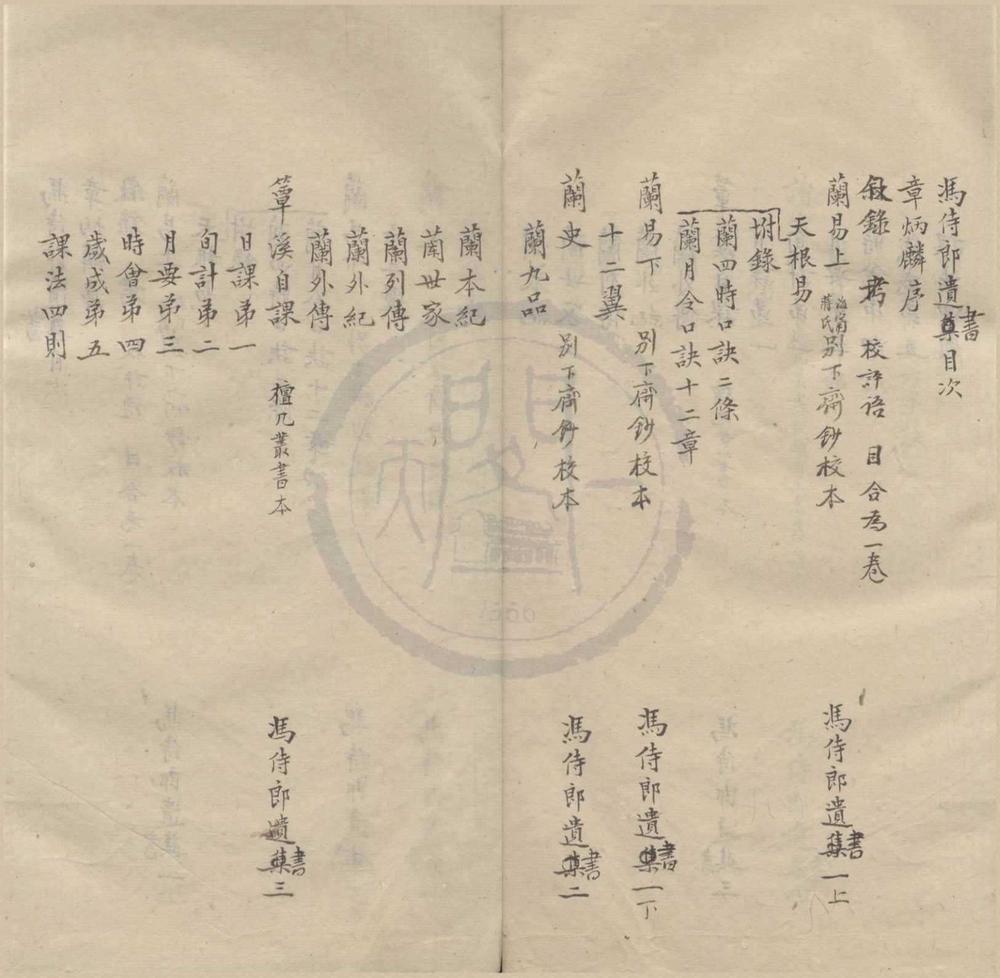 馮侍郎遺書目次
章炳麟序
敘錄 考 校評語 目合為一卷
蘭易上 蔣氏別下齋鈔校本 馮侍郎遺書一上
天根易
坿錄
蘭四時口訣二條
蘭月令口訣十二章
蘭易下 別下齋鈔校本 馮侍郎遺書一下
十二翼
蘭史 別下齋鈔校本 馮侍郎遺書二
蘭九品
蘭本紀
蘭世家
蘭列傳
蘭外紀
蘭外傳
簟溪自課 檀几叢書本 馮侍郎遺書三
日課弟一
旬計弟二
月要弟三
時會弟四
歲成弟五
課法四則